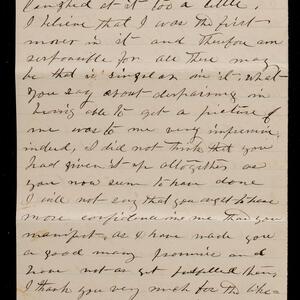 laughed at it too a little.
I believe that I was the first
mover in it and therefore am
responsible for all there may
be that is singular in it, what
you say about despairing in
being able to get a picture of
me was to me very impressive
indeed, I did not think that you
had given it up altogether as
you now seem to have done
I will not say that you ought to have
more confidence in me than you
manifest, as I have made you
a good many promises and
have not as yet fulfilled them,
I thank you very much for the like-